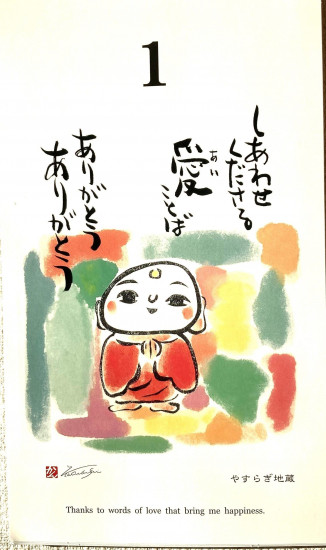 1
しあわせ
くださる
愛ことば
あい
ありがとう
ありがとう
やすらぎ地蔵
Thanks to words of love that bring me happiness.